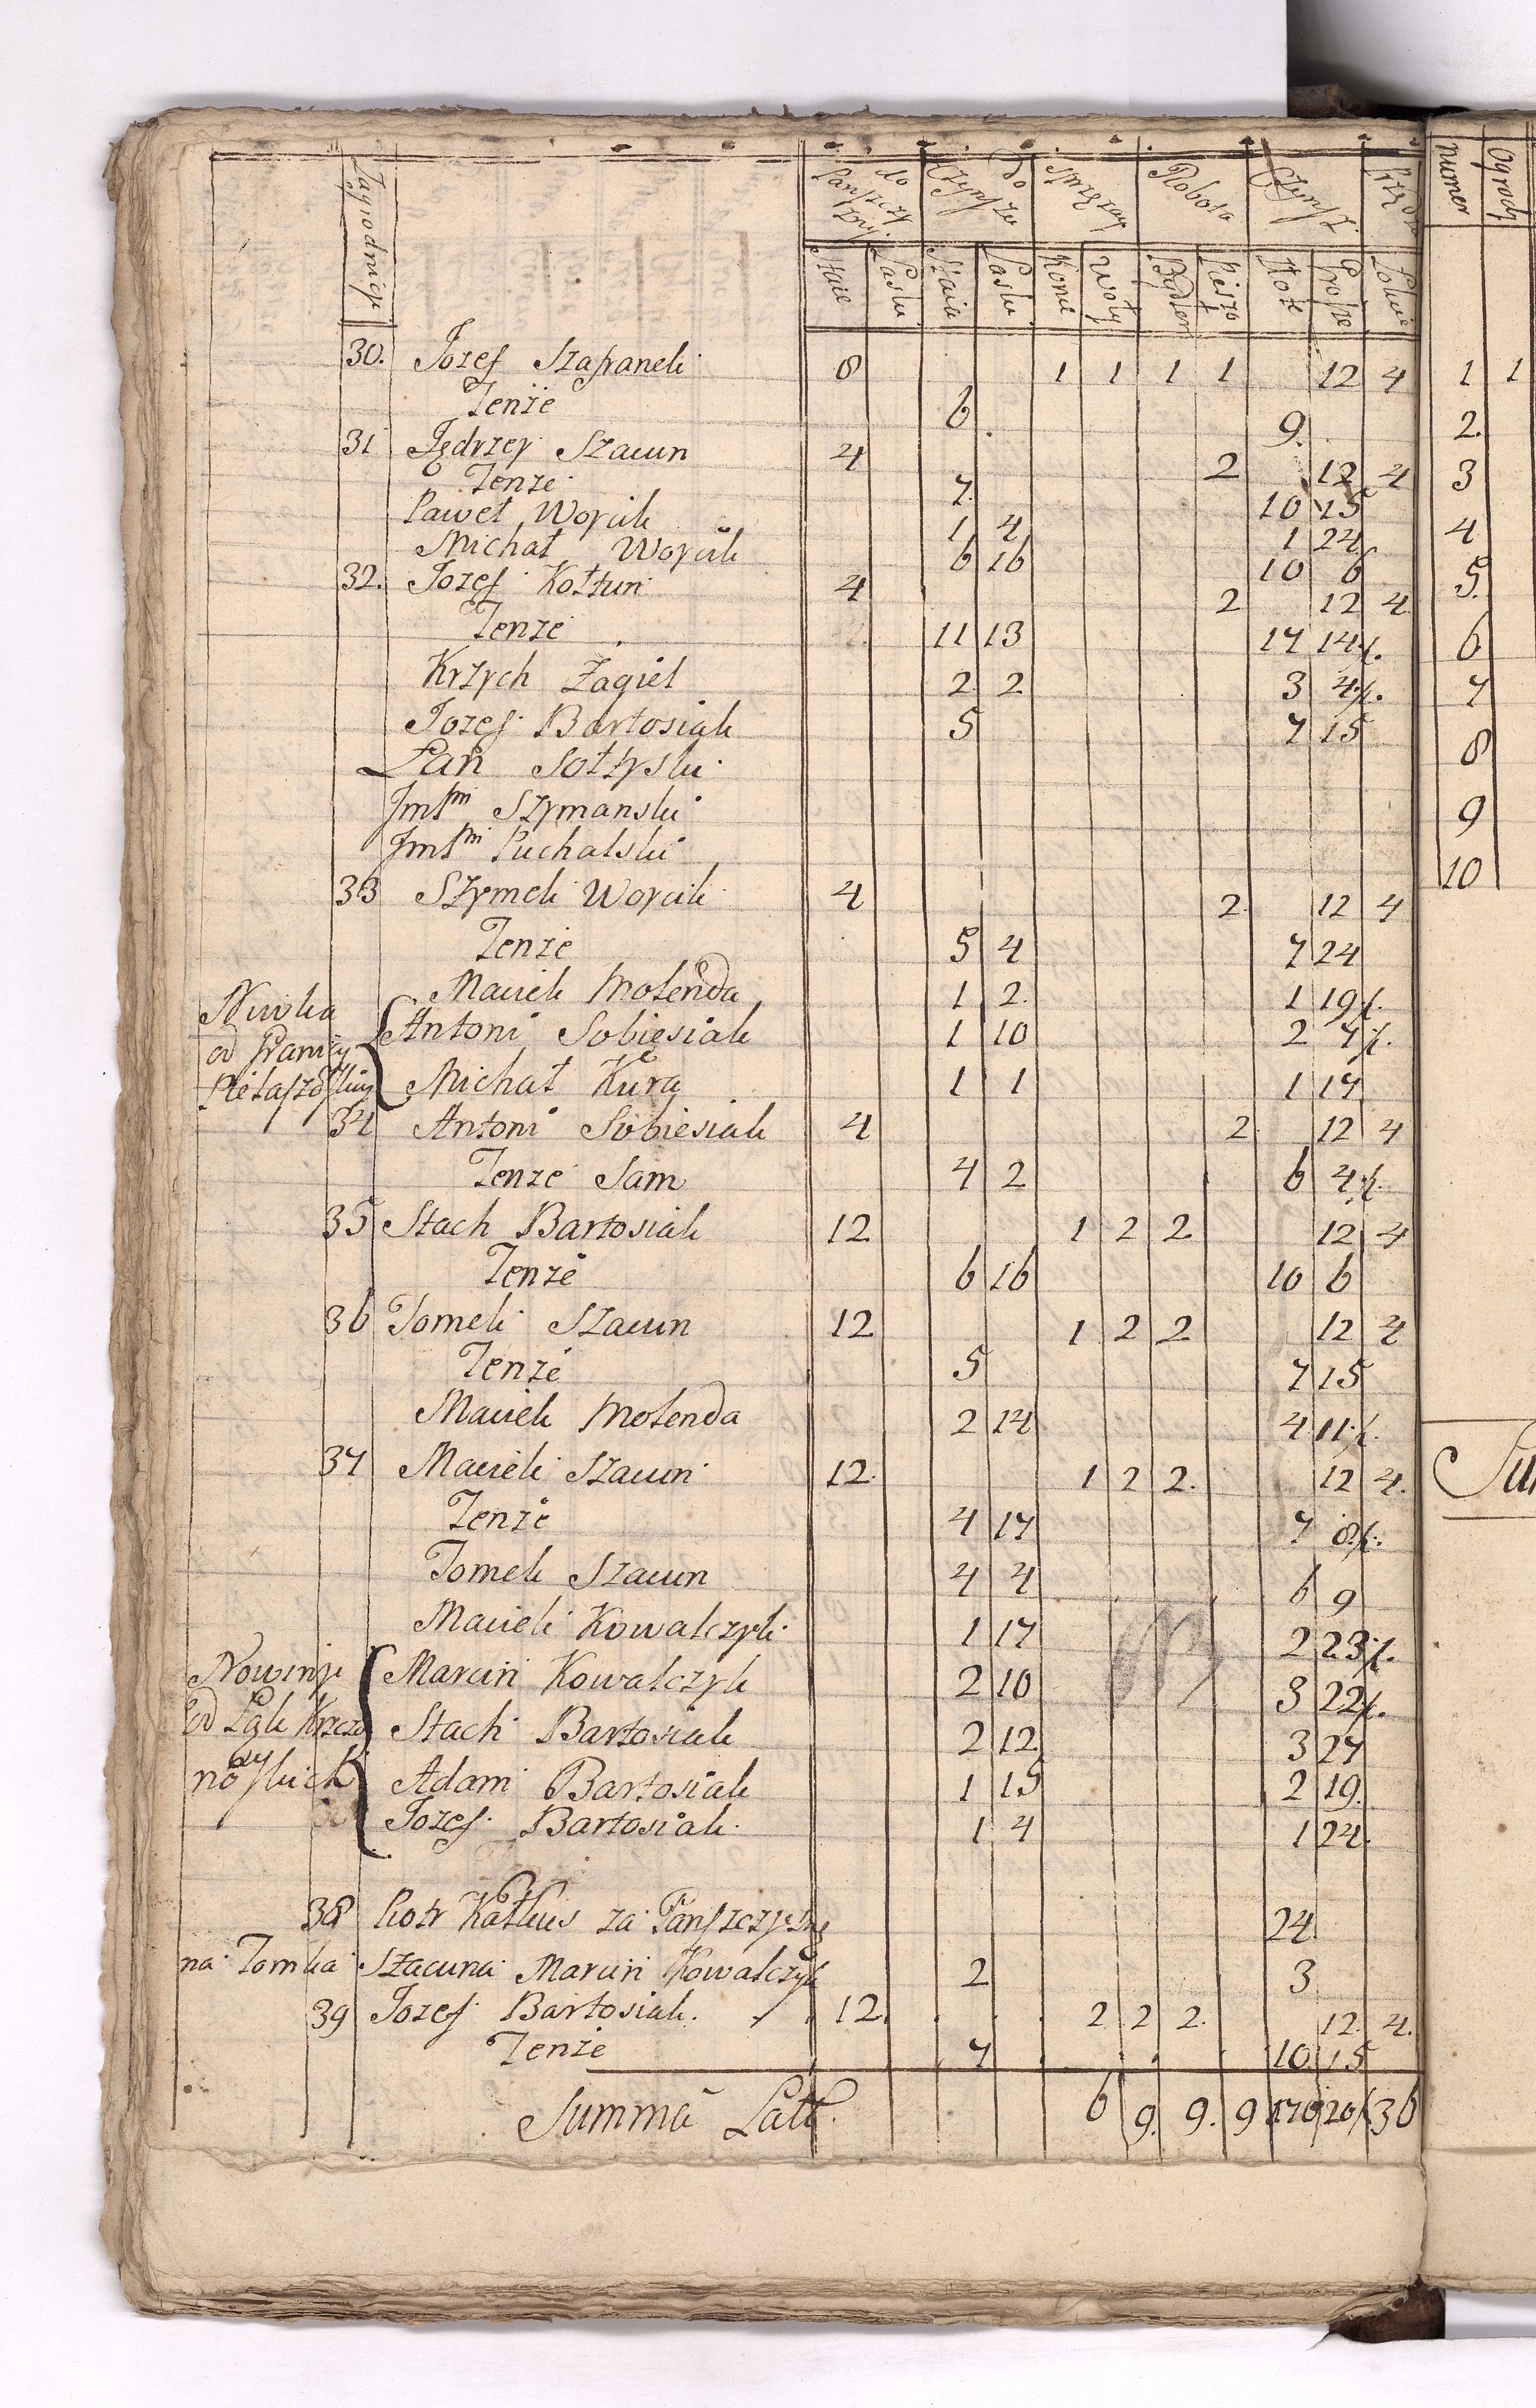 Zagrodnicy do Panszczyzny do Czynszu Sprzężay Robota Czynsz numer Ogrody
Staie Laski Staia Laski Konie Woły Bydłem Pieszo Złote Grosze
30. Jozef Szafranek 8 1 1 1 1 12 4
Tenże 6 9.
31 Jędrzey Szacun 4 2 12 4
Tenże 7. 10 15
Paweł Woycik 1 4 1 24
Michał Woycik 6 16 10 6
32. Jozef Kołtun 4 2 12 4
Tenże 11 13 17 14 ½.
Krzych Żagiel 2 2 3 4 ½.
Jozef Bartosiak 5 7 15
Pan Sołtyski
Jmć Pn Szymanski
Jmć Pn Puchalski
33 Szymek Woycik 4 2 12 4
Tenże 5 4 7 24
Maciek Molenda 1 2. 1 19 ½.
Niwka
od Granicy
{Antoni Sobiesiak 1 10 2 7 ½.
Michał Kura 1 1 1 17
34 Antoni Sobiesiak 4 2 12 4
Tenże Sam 4 2 6 4 ½.
35 Stach Bartosiak 12 1 2 2 12 4
Tenże 6 16 10 6
36 Tomek Szacun 12 1 2 2 12 4
Tenże 5 7 15
Maciek Molenda 2 14 4 11 ½.
37 Maciek Szacun 12. 1 2 2. 12 4.
Tenże 4 17 7 8 ½.
Tomek Szacun 4 4 6 9
Maciek Kowalczyk 1 17 2 23 ½.
Nowiny
od Łąk
{Marcin Kowalczyk 2 10 3 22 ½.
Stach Bartosiak 2 12 3 27
Adam Bartosiak 1 15 2 19.
Jozef Bartosiak 1 4 1 24.
38 Piotr za Panszczyznę 24
na Tomka Szacuna Marcin Kowalczyk 2 3
39 Jozef Bartosiak. 12. 2 2 2. 12. 4.
Tenże 7 10 15
Summa Latt. 6 9. 9. 9 36
1 1
2.
3
4
5.
6
7
8
9
10